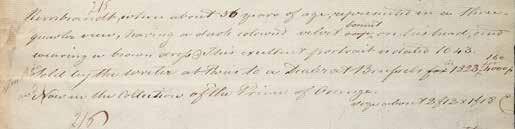 215
Rembrandt, when about 36 years of age, represented in a three-
bonnet
quarter view, having a dark colored velvet cap, on his head, and
wearing a brown dress. This excellent portrait is dated 1643.
160
Sold by the writer at to a Dealer at Brussels for in 1823, 4000 f
Now in the Collection of the Prince of Orange.
size about 2
215